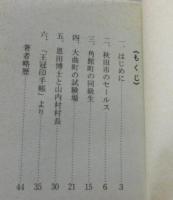 《もくじ》
一、はじめに 3
二、秋田市のセールス 6
三、角館町の同級生 15
四、大曲町の試験場 21
五、恩田博士と山内村村長 30
六、「王冠印手帳」より 35
著者略歴 44